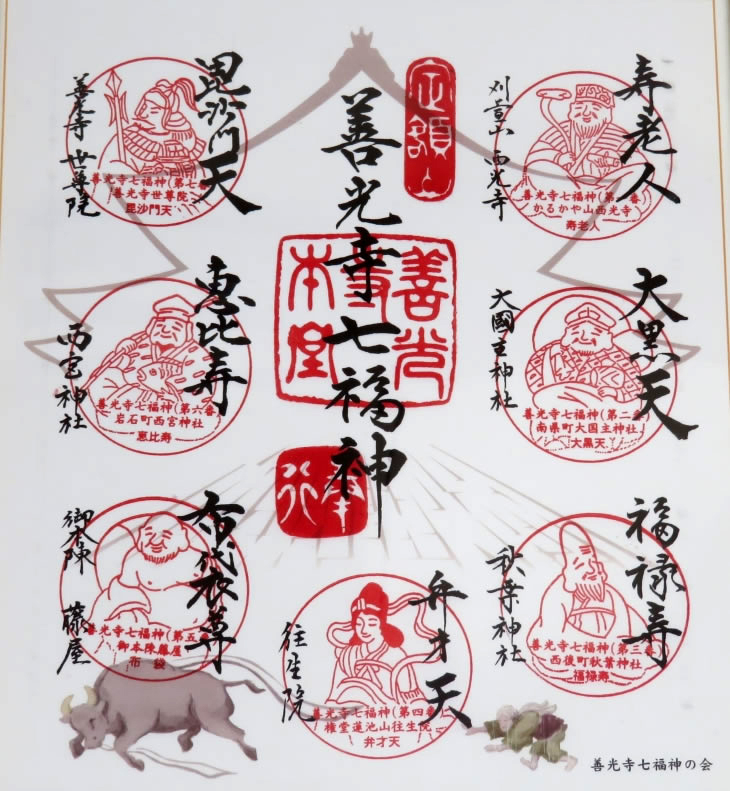 善光寺七福神
定額山
善光寺本堂
奉行
寿老人
刈萱山 西光寺
善光寺七福神(第一番)
かるかや山西光寺
寿老人
大黒天
大國主神社
善光寺七福神(第二番)
南県町大国主神社
大黒天
福禄寿
秋葉神社
善光寺七福神(第三番)
西後町秋葉神社
福禄寿
弁才天
往生院
善光寺七福神(第四番)
権堂蓮池山往生院
弁才天
布代衣尊
御本陳 藤屋
善光寺七福神(第五番)
御本陳藤屋
布袋
恵比寿
西宮神社
善光寺七福神(第六番)
岩石町西宮神社
恵比寿
毘沙門天
善光寺 世尊院
善光寺七福神(第七番)
善光寺世尊院
毘沙門天
善光寺七福神の会